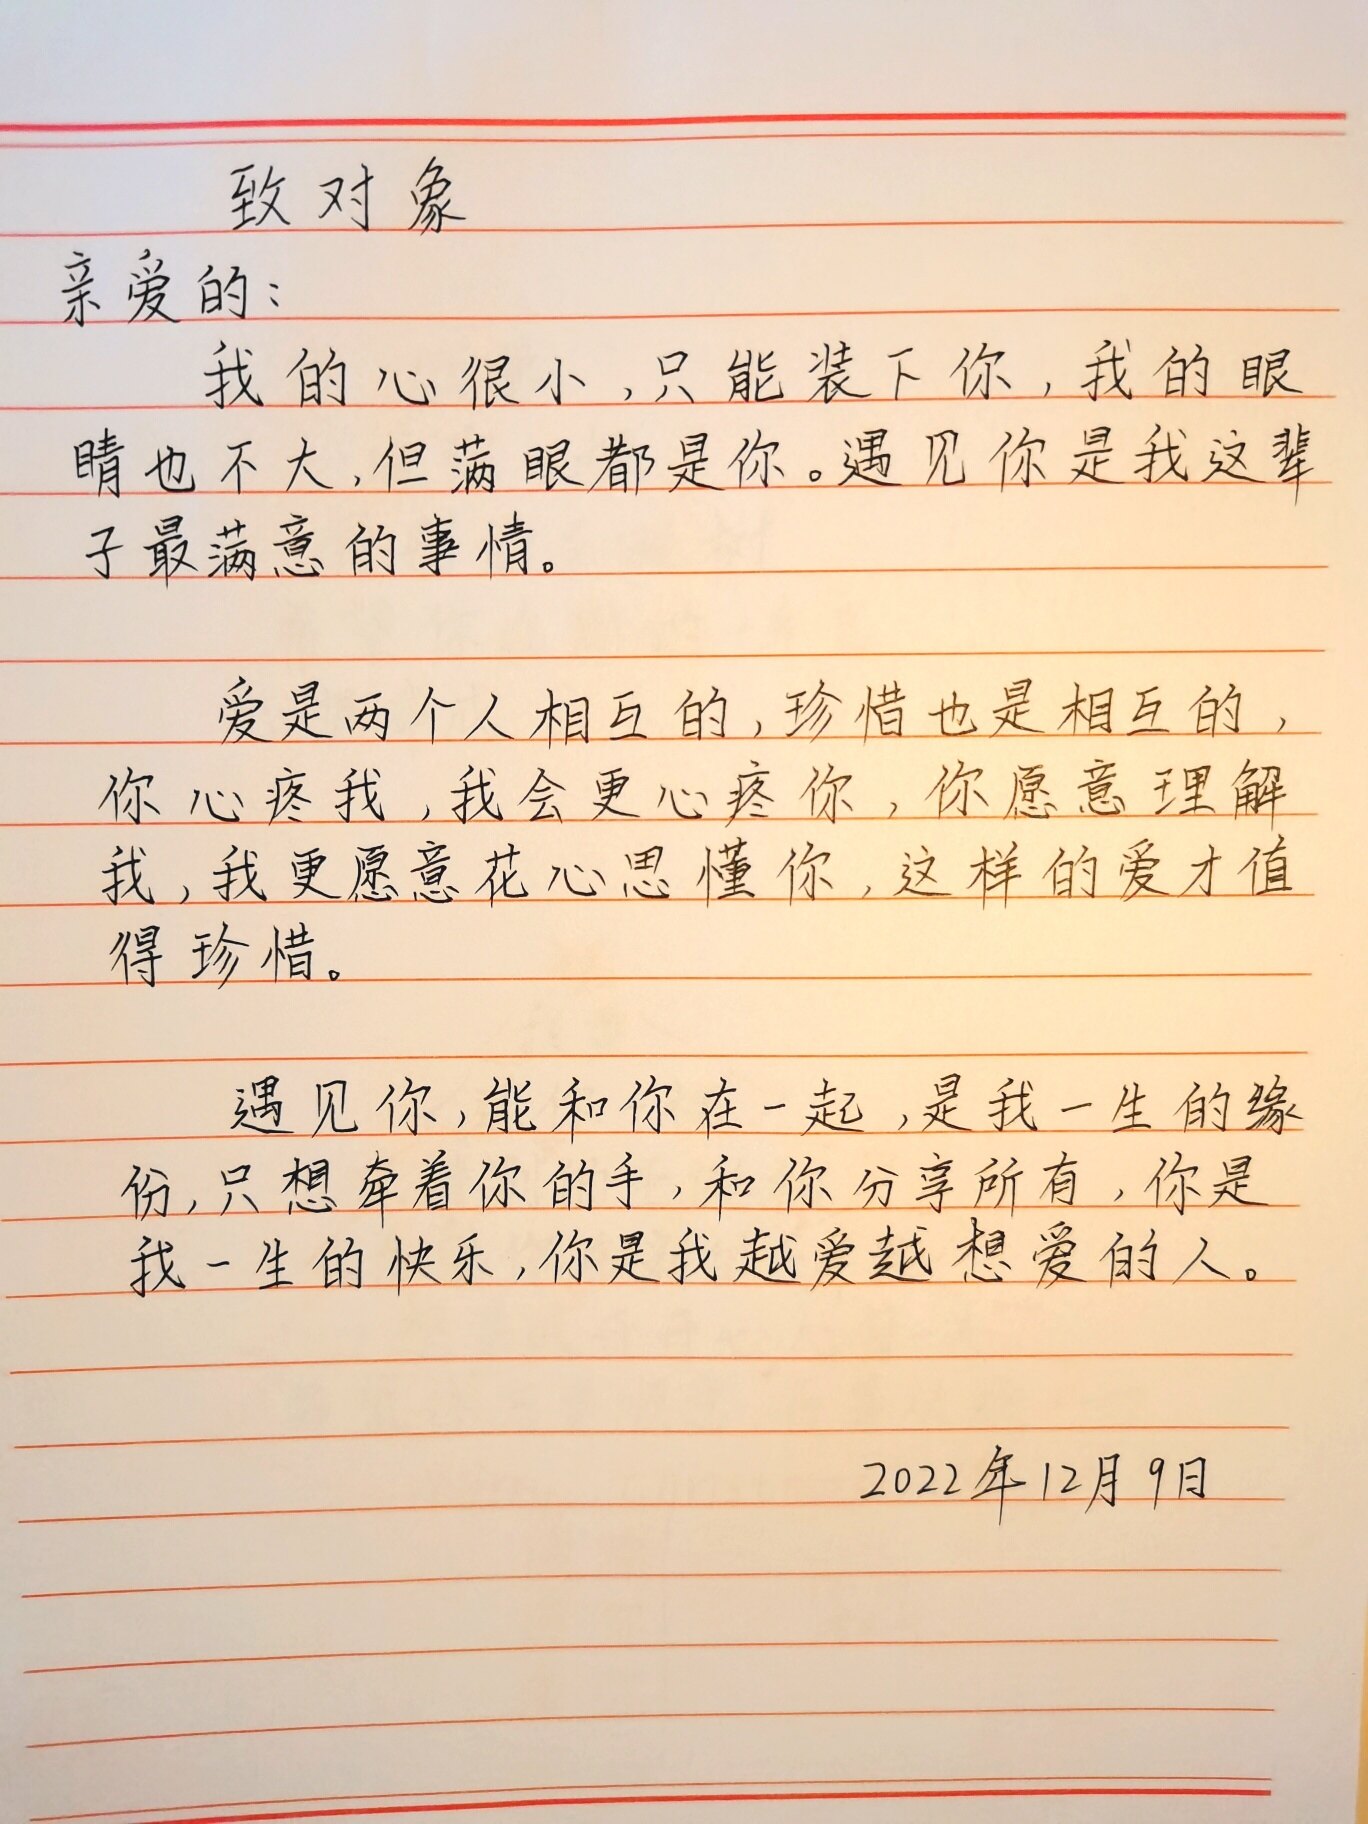 致对象
亲爱的：
我的心很小，只能装下你，我的眼
睛也不大，但满眼都是你。遇见你是我这辈
子最满意的事情。
爱是两个人相互的，珍惜也是相互的，
你心疼我，我会更心疼你，你愿意理解
我，我更愿意花心思懂你，这样的爱才值
得珍惜。
遇见你，能和你在一起，是我一生的缘
份，只想牵着你的手，和你分享所有，你是
我一生的快乐，你是我越爱越想爱的人。
2022年12月9日